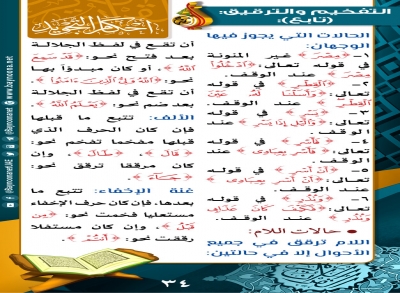 التفخيم والترقيق:
(تابع):
أحكام التجويد
الحالات التي يجوز فيها
الوجهان:
١- ﴿مِصْرَ﴾ غير المنونة
في قوله تعالى:
﴿مِصْرَ﴾ عند الوقف.
٢- ﴿ٱلْقِطْرِ﴾ في قوله
تعالى:
﴿ٱلْقِطْرِ﴾ عند الوقف.
٣- ﴿يَسْرِ﴾ في قوله
تعالى: ﴿وَٱلَّيْلِ إِذَا يَسْرِ﴾ عند
الوقف.
٤- ﴿فَأَسْرِ﴾ في قوله
تعالى: ﴿فَأَسْرِ بِعِبَادِى﴾ عند
الوقف.
٥- ﴿أَنْ أَسْرِ﴾ في قوله
تعالى: ﴿أَنْ أَسْرِ بِعِبَادِى﴾
عند الوقف.
٦- ﴿وَنُذُرِ﴾ في قوله
﴿وَنُذُرِ﴾ عند الوقف.
• حالات اللام:
اللام ترقق في جميع
الأحوال إلا في حالتين:
أن تقع في لفظ الجلالة
بعد فتح نحو: ﴿قَدْ سَمِعَ
ٱللَّهُ﴾، أو كان مبدوءا بها
نحو: ﴿ٱللَّهُ وَلِىُّ ٱلَّذِينَ ءَامَنُوا۟﴾.
أن تقع في لفظ الجلالة
بعد ضم نحو: ﴿وَيَعْلَمُ ٱللَّهُ﴾.
الألف: تتبع ما قبلها
فإن كان الحرف الذي
قبلها مفخما تفخم نحو:
﴿قَالَ﴾، ﴿طَالَ﴾، وإن
كان مرققا ترقق نحو:
﴿جَآءَ﴾.
غنة الإخفاء: تتبع ما
بعدها، فإن كان حرف الإخفاء
مستعليا فخمت نحو: ﴿مِن
قَبْلُ﴾، وإن كان مستفلا
رققت نحو: ﴿أَنتُمْ﴾.
www.baynoona.net
٣٤